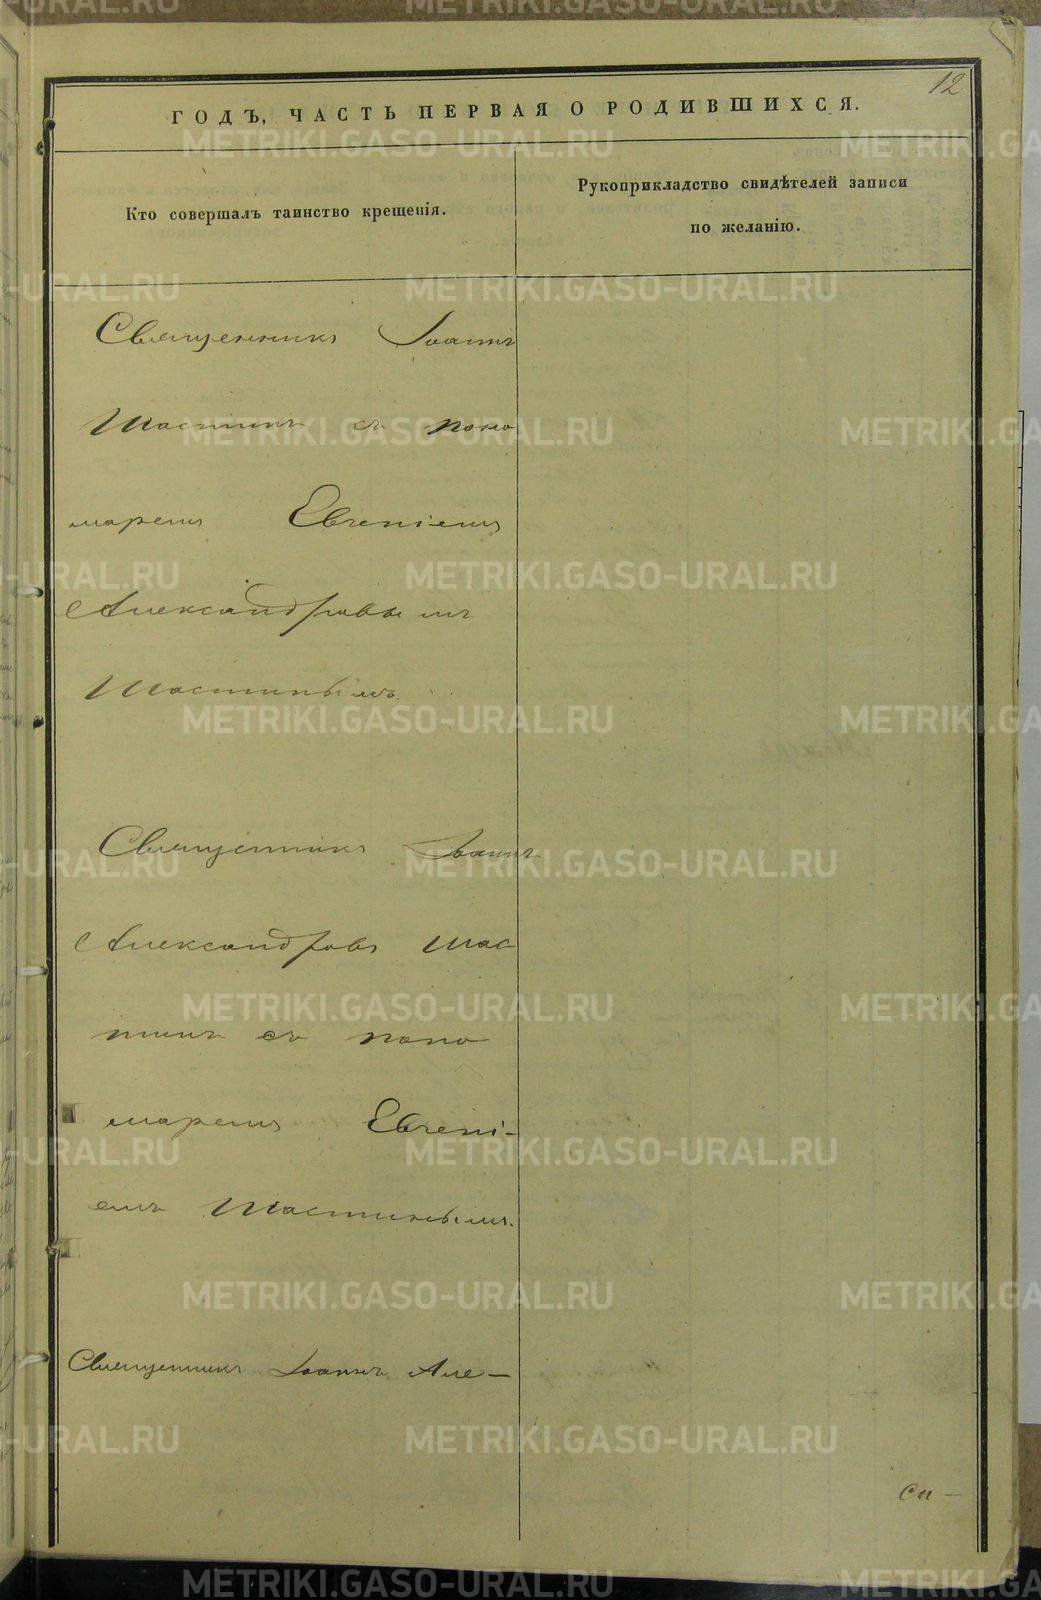 12
ГОДЪ, ЧАСТЬ ПЕРВАЯ О РОДИВШИХСЯ.
Кто совершалъ таинство крещенія.
Рукоприкладство свидѣтелей записи
по желанію.
Священникъ Іоаннъ
Шастинъ съ поно
маремъ Евгеніемъ
Александровымъ
Шастинымъ.
Священникъ Іоаннъ
Александровъ Шас
тинъ съ поно
маремъ Евгені-
емъ Шастинымъ.
Священникъ Іоаннъ Але-
METRIKI.GASO-URAL.RU